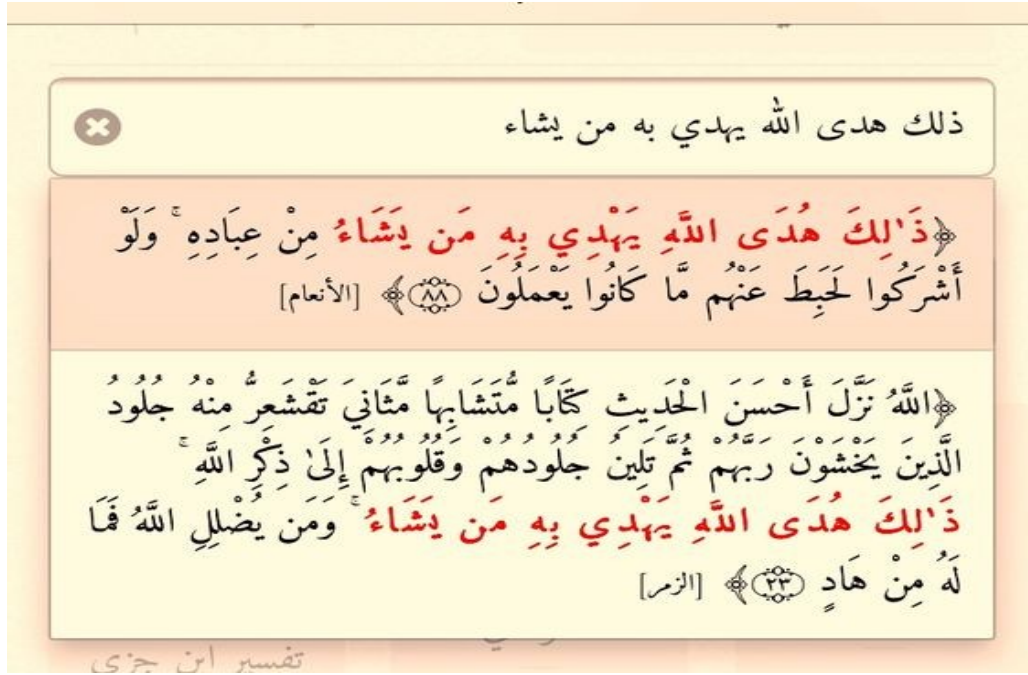 ذلك هدى الله يهدي به من يشاء
﴿ذَٰلِكَ هُدَى اللَّهِ يَهْدِي بِهِ مَن يَشَاءُ مِنْ عِبَادِهِ ۚ وَلَوْ
أَشْرَكُوا لَحَبِطَ عَنْهُم مَّا كَانُوا يَعْمَلُونَ ﴿٨٨﴾﴾ [الأنعام]
﴿اللَّهُ نَزَّلَ أَحْسَنَ الْحَدِيثِ كِتَابًا مُّتَشَابِهًا مَّثَانِيَ تَقْشَعِرُّ مِنْهُ جُلُودُ
الَّذِينَ يَخْشَوْنَ رَبَّهُمْ ثُمَّ تَلِينُ جُلُودُهُمْ وَقُلُوبُهُمْ إِلَىٰ ذِكْرِ اللَّهِ ۚ
ذَٰلِكَ هُدَى اللَّهِ يَهْدِي بِهِ مَن يَشَاءُ ۚ وَمَن يُضْلِلِ اللَّهُ فَمَا
لَهُ مِنْ هَادٍ ﴿٢٣﴾﴾ [الزمر]
تفسير ابن جزي